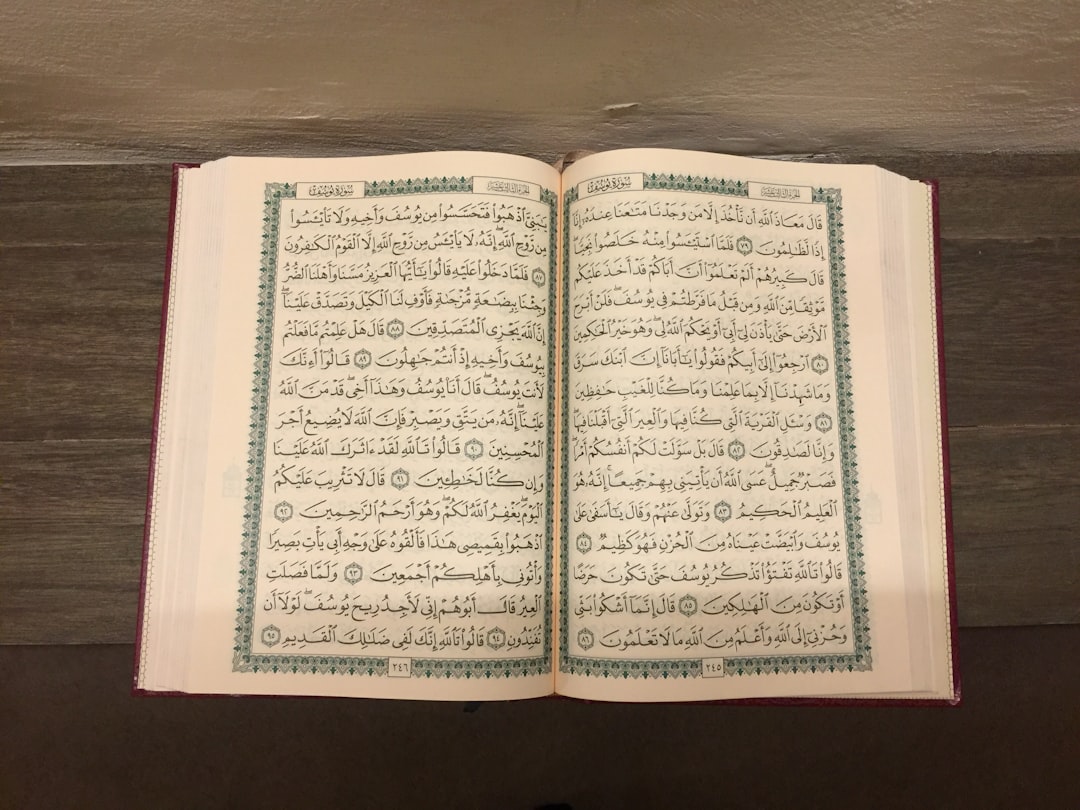 سورة يوسف
الجزء الثالث عشر
قَالَ مَعَاذَ ٱللَّهِ أَن نَّأْخُذَ إِلَّا مَن وَجَدْنَا مَتَٰعَنَا عِندَهُۥٓ إِنَّآ
إِذًا لَّظَٰلِمُونَ ٧٩ فَلَمَّا ٱسْتَيْـَٔسُوا۟ مِنْهُ خَلَصُوا۟ نَجِيًّا
قَالَ كَبِيرُهُمْ أَلَمْ تَعْلَمُوٓا۟ أَنَّ أَبَاكُمْ قَدْ أَخَذَ عَلَيْكُم
مَّوْثِقًا مِّنَ ٱللَّهِ وَمِن قَبْلُ مَا فَرَّطتُمْ فِى يُوسُفَ ۖ فَلَنْ أَبْرَحَ
ٱلْأَرْضَ حَتَّىٰ يَأْذَنَ لِىٓ أَبِىٓ أَوْ يَحْكُمَ ٱللَّهُ لِى ۖ وَهُوَ خَيْرُ ٱلْحَٰكِمِينَ
٨٠ ٱرْجِعُوٓا۟ إِلَىٰٓ أَبِيكُمْ فَقُولُوا۟ يَٰٓأَبَانَآ إِنَّ ٱبْنَكَ سَرَقَ
وَمَا شَهِدْنَآ إِلَّا بِمَا عَلِمْنَا وَمَا كُنَّا لِلْغَيْبِ حَٰفِظِينَ
٨١ وَسْـَٔلِ ٱلْقَرْيَةَ ٱلَّتِى كُنَّا فِيهَا وَٱلْعِيرَ ٱلَّتِىٓ أَقْبَلْنَا فِيهَا ۖ
وَإِنَّا لَصَٰدِقُونَ ٨٢ قَالَ بَلْ سَوَّلَتْ لَكُمْ أَنفُسُكُمْ أَمْرًا ۖ
فَصَبْرٌ جَمِيلٌ ۖ عَسَى ٱللَّهُ أَن يَأْتِيَنِى بِهِمْ جَمِيعًا ۚ إِنَّهُۥ هُوَ
ٱلْعَلِيمُ ٱلْحَكِيمُ ٨٣ وَتَوَلَّىٰ عَنْهُمْ وَقَالَ يَٰٓأَسَفَىٰ عَلَىٰ
يُوسُفَ وَٱبْيَضَّتْ عَيْنَاهُ مِنَ ٱلْحُزْنِ فَهُوَ كَظِيمٌ ٨٤
قَالُوا۟ تَٱللَّهِ تَفْتَؤُا۟ تَذْكُرُ يُوسُفَ حَتَّىٰ تَكُونَ حَرَضًا
أَوْ تَكُونَ مِنَ ٱلْهَٰلِكِينَ ٨٥ قَالَ إِنَّمَآ أَشْكُوا۟ بَثِّى
وَحُزْنِىٓ إِلَى ٱللَّهِ وَأَعْلَمُ مِنَ ٱللَّهِ مَا لَا تَعْلَمُونَ ٨٦
٢٤٥
سورة يوسف
الجزء الثالث عشر
يَٰبَنِىَّ ٱذْهَبُوا۟ فَتَحَسَّسُوا۟ مِن يُوسُفَ وَأَخِيهِ وَلَا تَا۟يْـَٔسُوا۟
مِن رَّوْحِ ٱللَّهِ ۖ إِنَّهُۥ لَا يَا۟يْـَٔسُ مِن رَّوْحِ ٱللَّهِ إِلَّا ٱلْقَوْمُ ٱلْكَٰفِرُونَ
٨٧ فَلَمَّا دَخَلُوا۟ عَلَيْهِ قَالُوا۟ يَٰٓأَيُّهَا ٱلْعَزِيزُ مَسَّنَا وَأَهْلَنَا ٱلضُّرُّ
وَجِئْنَا بِبِضَٰعَةٍ مُّزْجَىٰةٍ فَأَوْفِ لَنَا ٱلْكَيْلَ وَتَصَدَّقْ عَلَيْنَآ ۖ
إِنَّ ٱللَّهَ يَجْزِى ٱلْمُتَصَدِّقِينَ ٨٨ قَالَ هَلْ عَلِمْتُم مَّا فَعَلْتُم
بِيُوسُفَ وَأَخِيهِ إِذْ أَنتُمْ جَٰهِلُونَ ٨٩ قَالُوٓا۟ أَءِنَّكَ
لَأَنتَ يُوسُفُ ۖ قَالَ أَنَا۠ يُوسُفُ وَهَٰذَآ أَخِى ۖ قَدْ مَنَّ ٱللَّهُ
عَلَيْنَآ ۖ إِنَّهُۥ مَن يَتَّقِ وَيَصْبِرْ فَإِنَّ ٱللَّهَ لَا يُضِيعُ أَجْرَ
ٱلْمُحْسِنِينَ ٩٠ قَالُوا۟ تَٱللَّهِ لَقَدْ ءَاثَرَكَ ٱللَّهُ عَلَيْنَا
وَإِن كُنَّا لَخَٰطِـِٔينَ ٩١ قَالَ لَا تَثْرِيبَ عَلَيْكُمُ
ٱلْيَوْمَ ۖ يَغْفِرُ ٱللَّهُ لَكُمْ ۖ وَهُوَ أَرْحَمُ ٱلرَّٰحِمِينَ ٩٢
ٱذْهَبُوا۟ بِقَمِيصِى هَٰذَا فَأَلْقُوهُ عَلَىٰ وَجْهِ أَبِى يَأْتِ بَصِيرًا
وَأْتُونِى بِأَهْلِكُمْ أَجْمَعِينَ ٩٣ وَلَمَّا فَصَلَتِ
ٱلْعِيرُ قَالَ أَبُوهُمْ إِنِّى لَأَجِدُ رِيحَ يُوسُفَ ۖ لَوْلَآ أَن
تُفَنِّدُونِ ٩٤ قَالُوا۟ تَٱللَّهِ إِنَّكَ لَفِى ضَلَٰلِكَ ٱلْقَدِيمِ ٩٥
٢٤٦